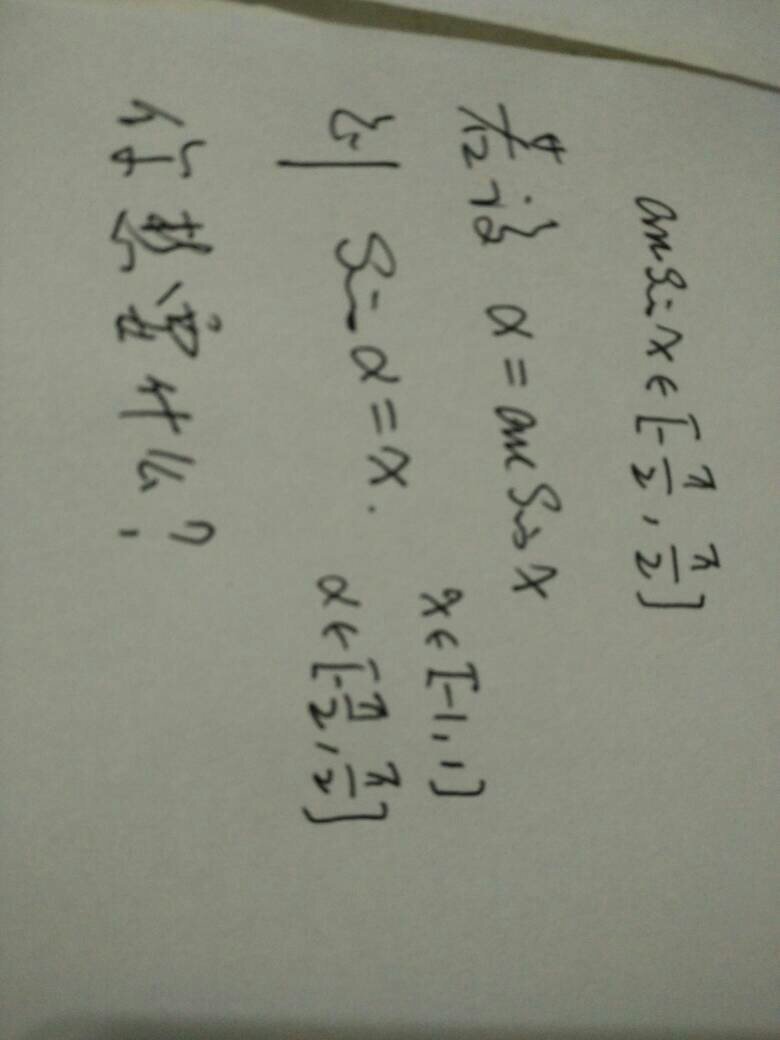 arcsinx∈[-π/2, π/2]
若记 α=arcsinx
x∈[-1,1]
则 sinα=x.
α∈[-π/2, π/2]
你想算什么?